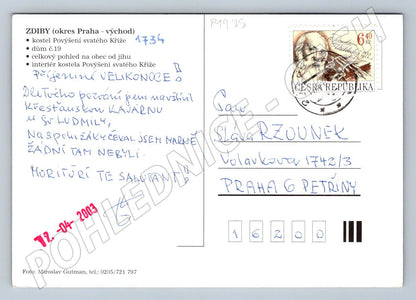 ZDIBY (okres Praha - východ)
• kostel Povýšení svatého Kříže
• dům č.19
• celkový pohled na obec od jihu
• interiér kostela Povýšení svatého Kříže
1734
P1935
PŘÍJEMNÉ VELIKONOCE!
DLE TVÉHO POZVÁNÍ JSEM NAVŠTÍVIL
KŘESŤANSKOU KAVÁRNU
U SV LUDMILY,
NA SPOLUŽÁKY ČEKAL JSEM MARNĚ
ŽÁDNÍ TAM NEBYLI.
MORITURI TE SALUTANT!
12. -04- 2003
Foto: Miroslav Gutman, tel.: 0205/721 797
6,40
ČESKÁ REPUBLIKA
Pan
Sláva RZOUNEK
Volavkova 1742/3
PRAHA 6 PETŘINY
16200
POHLEDNICE-CZECH